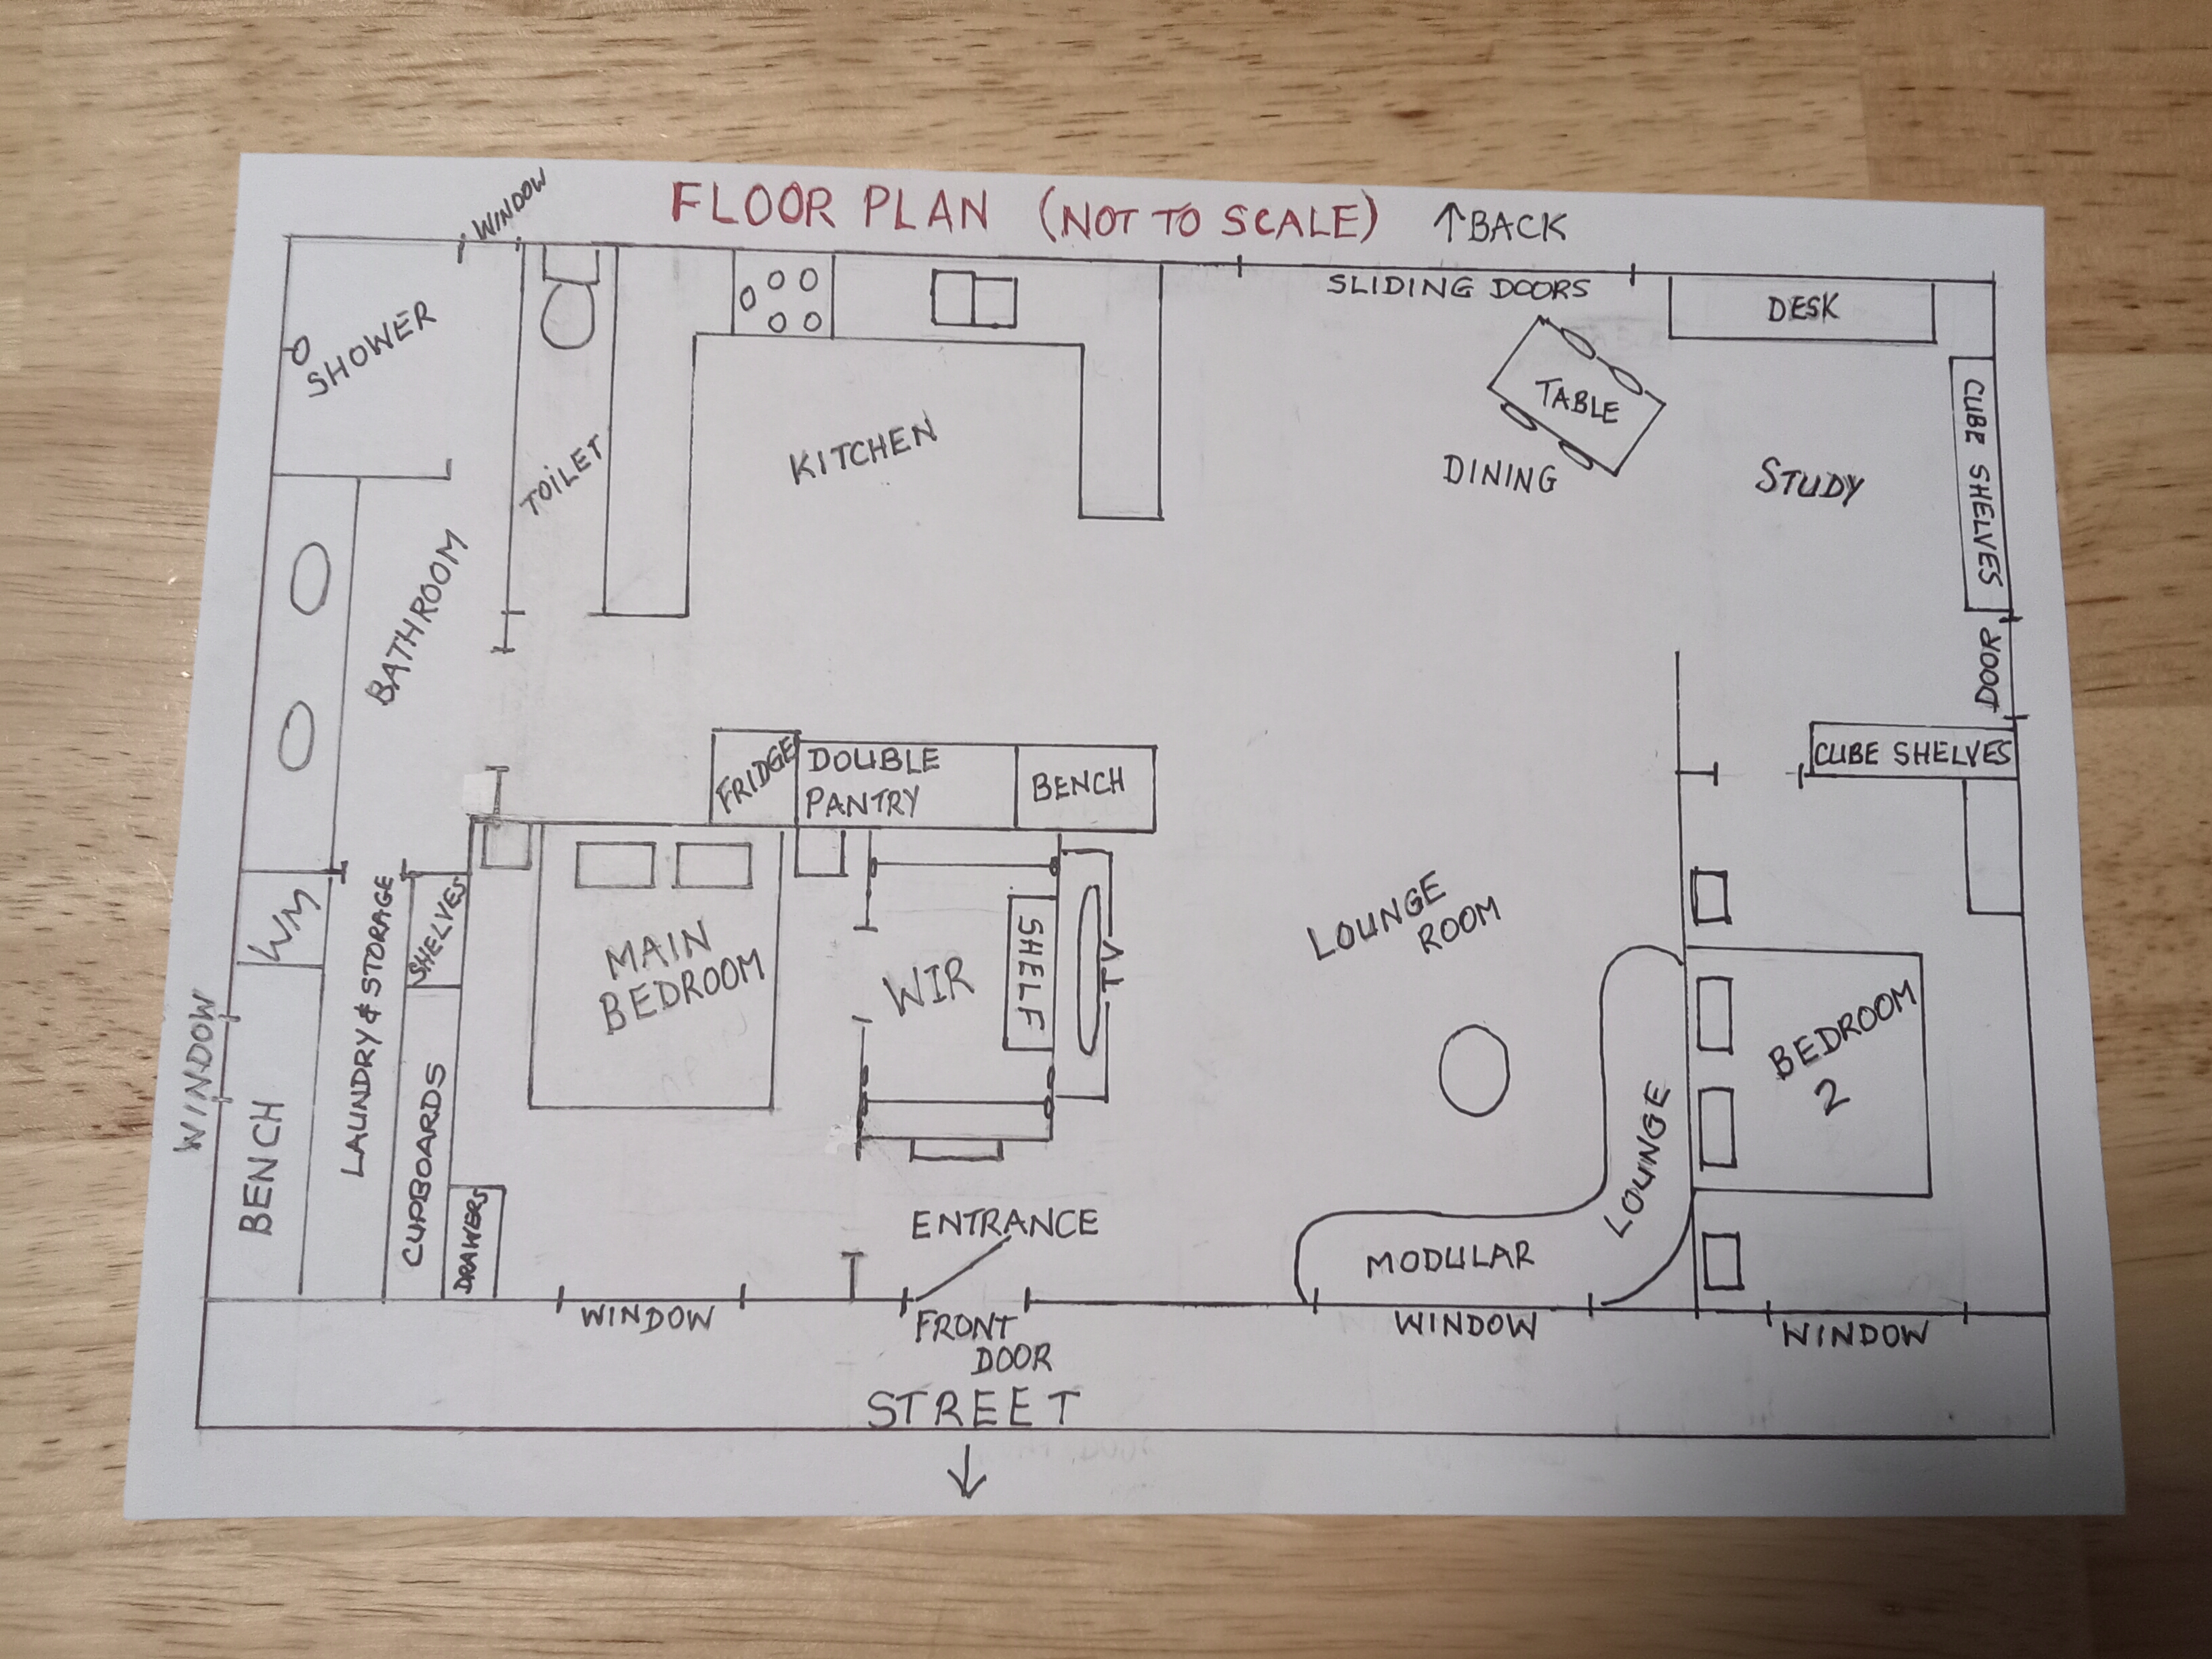 FLOOR PLAN (NOT TO SCALE) ↑BACK
WINDOW
SLIDING DOORS
DESK
SHOWER
TABLE
CUBE SHELVES
TOILET
KITCHEN
DINING
STUDY
BATHROOM
DOOR
FRIDGE
DOUBLE
PANTRY
BENCH
CUBE SHELVES
WM
LAUNDRY & STORAGE
SHELVES
MAIN
BEDROOM
WIR
SHELF
TV
LOUNGE
ROOM
WINDOW
BENCH
CUPBOARDS
DRAWERS
BEDROOM
2
LOUNGE
MODULAR
ENTRANCE
WINDOW
FRONT
DOOR
WINDOW
WINDOW
STREET
↓